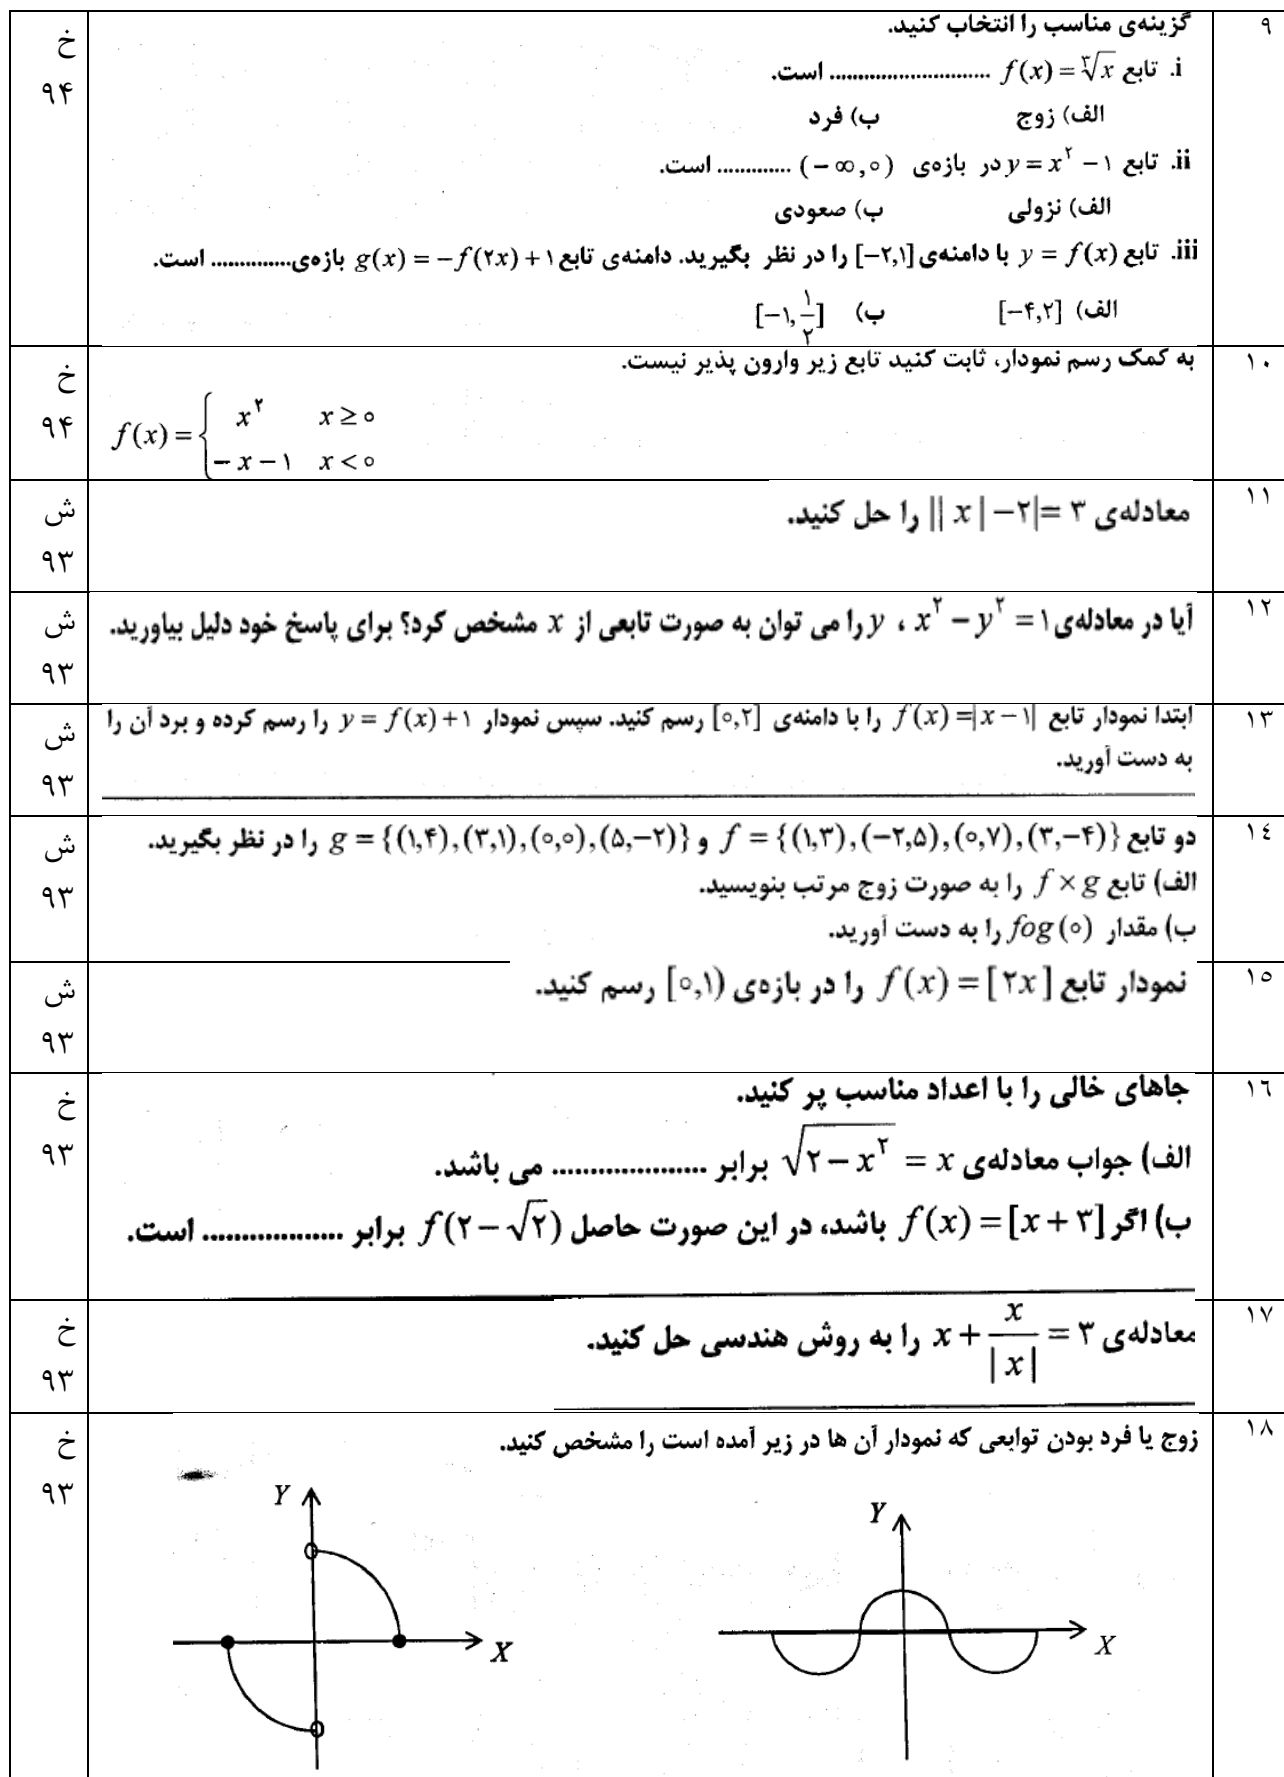 ۹ گزینه‌ی مناسب را انتخاب کنید. خ ۹۴
i. تابع f(x) = ∛x ........................... است.
الف) زوج ب) فرد
ii. تابع y = x² − ۱ در بازه‌ی (−∞,۰) ............. است.
الف) نزولی ب) صعودی
iii. تابع y = f(x) با دامنه‌ی [−۲,۱] را در نظر بگیرید. دامنه‌ی تابع g(x) = −f(۲x) + ۱ بازه‌ی.............. است.
الف) [−۴,۲] ب) [−۱, ۱/۲]
۱۰ به کمک رسم نمودار، ثابت کنید تابع زیر وارون پذیر نیست. خ ۹۴
f(x) = { x² x ≥ ۰
−x − ۱ x < ۰
۱۱ معادله‌ی ||x| − ۲| = ۳ را حل کنید. ش ۹۳
۱۲ آیا در معادله‌ی x² − y² = ۱ ، y را می توان به صورت تابعی از x مشخص کرد؟ برای پاسخ خود دلیل بیاورید. ش ۹۳
۱۳ ابتدا نمودار تابع f(x) = |x − ۱| را با دامنه‌ی [۰,۲] رسم کنید. سپس نمودار y = f(x) + ۱ را رسم کرده و برد آن را ش ۹۳
به دست آورید.
۱٤ دو تابع f = {(۱,۳),(−۲,۵),(۰,۷),(۳,−۴)} و g = {(۱,۴),(۳,۱),(۰,۰),(۵,−۲)} را در نظر بگیرید. ش ۹۳
الف) تابع f × g را به صورت زوج مرتب بنویسید.
ب) مقدار fog(۰) را به دست آورید.
۱۵ نمودار تابع f(x) = [۲x] را در بازه‌ی [۰,۱) رسم کنید. ش ۹۳
۱٦ جاهای خالی را با اعداد مناسب پر کنید. خ ۹۳
الف) جواب معادله‌ی √(۲ − x²) = x برابر .................... می باشد.
ب) اگر f(x) = [x + ۳] باشد، در این صورت حاصل f(۲ − √۲) برابر .................. است.
۱۷ معادله‌ی x + x/|x| = ۳ را به روش هندسی حل کنید. خ ۹۳
۱۸ زوج یا فرد بودن توابعی که نمودار آن ها در زیر آمده است را مشخص کنید. خ ۹۳
Y
X
Y
X